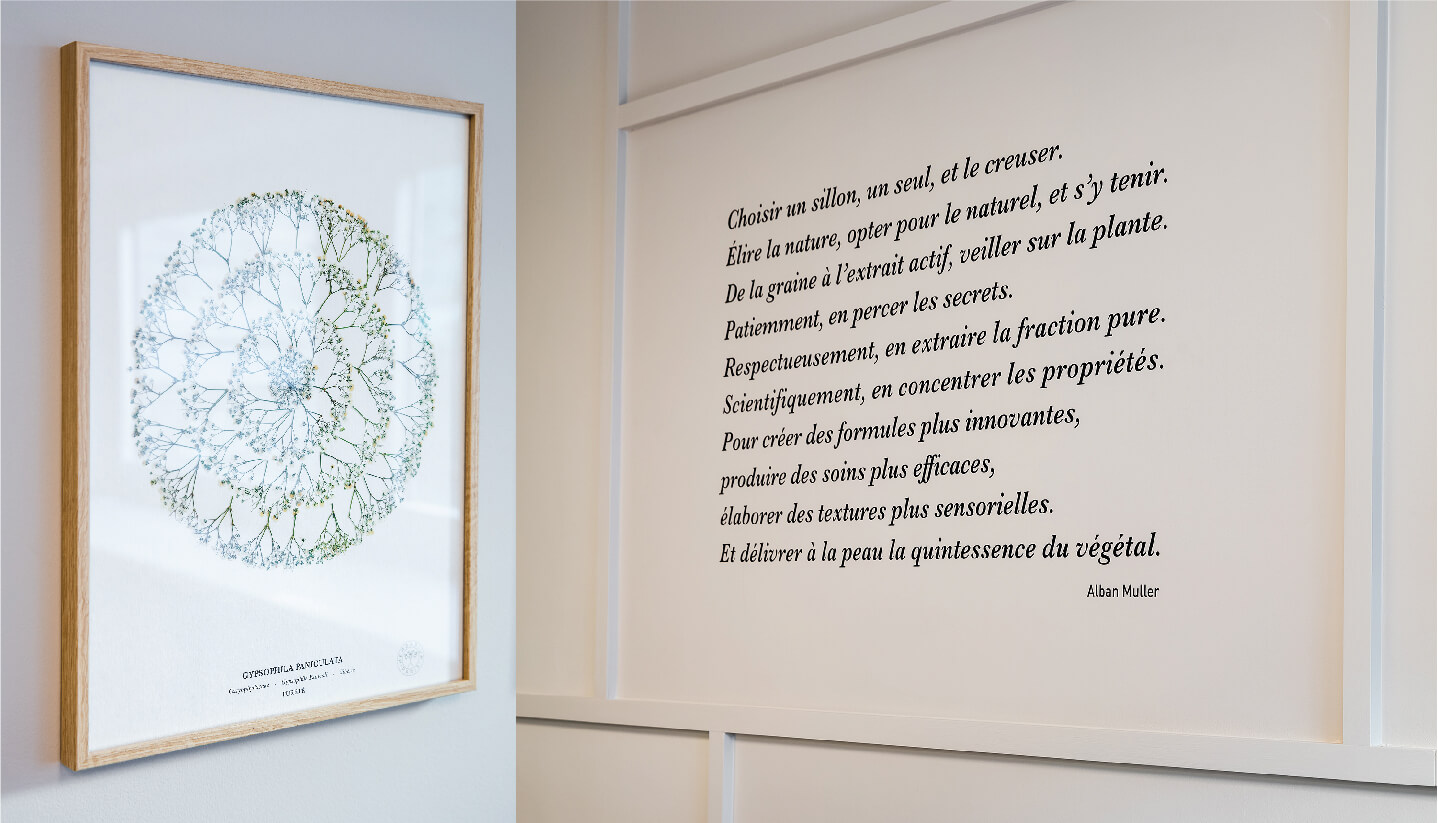 GYPSOPHILA PANICULATA
Choisir un sillon, un seul, et le creuser.
Élire la nature, opter pour le naturel, et s’y tenir.
De la graine à l’extrait actif, veiller sur la plante.
Patiemment, en percer les secrets.
Respectueusement, en extraire la fraction pure.
Scientifiquement, en concentrer les propriétés.
Pour créer des formules plus innovantes,
produire des soins plus efficaces,
élaborer des textures plus sensorielles.
Et délivrer à la peau la quintessence du végétal.
Alban Muller